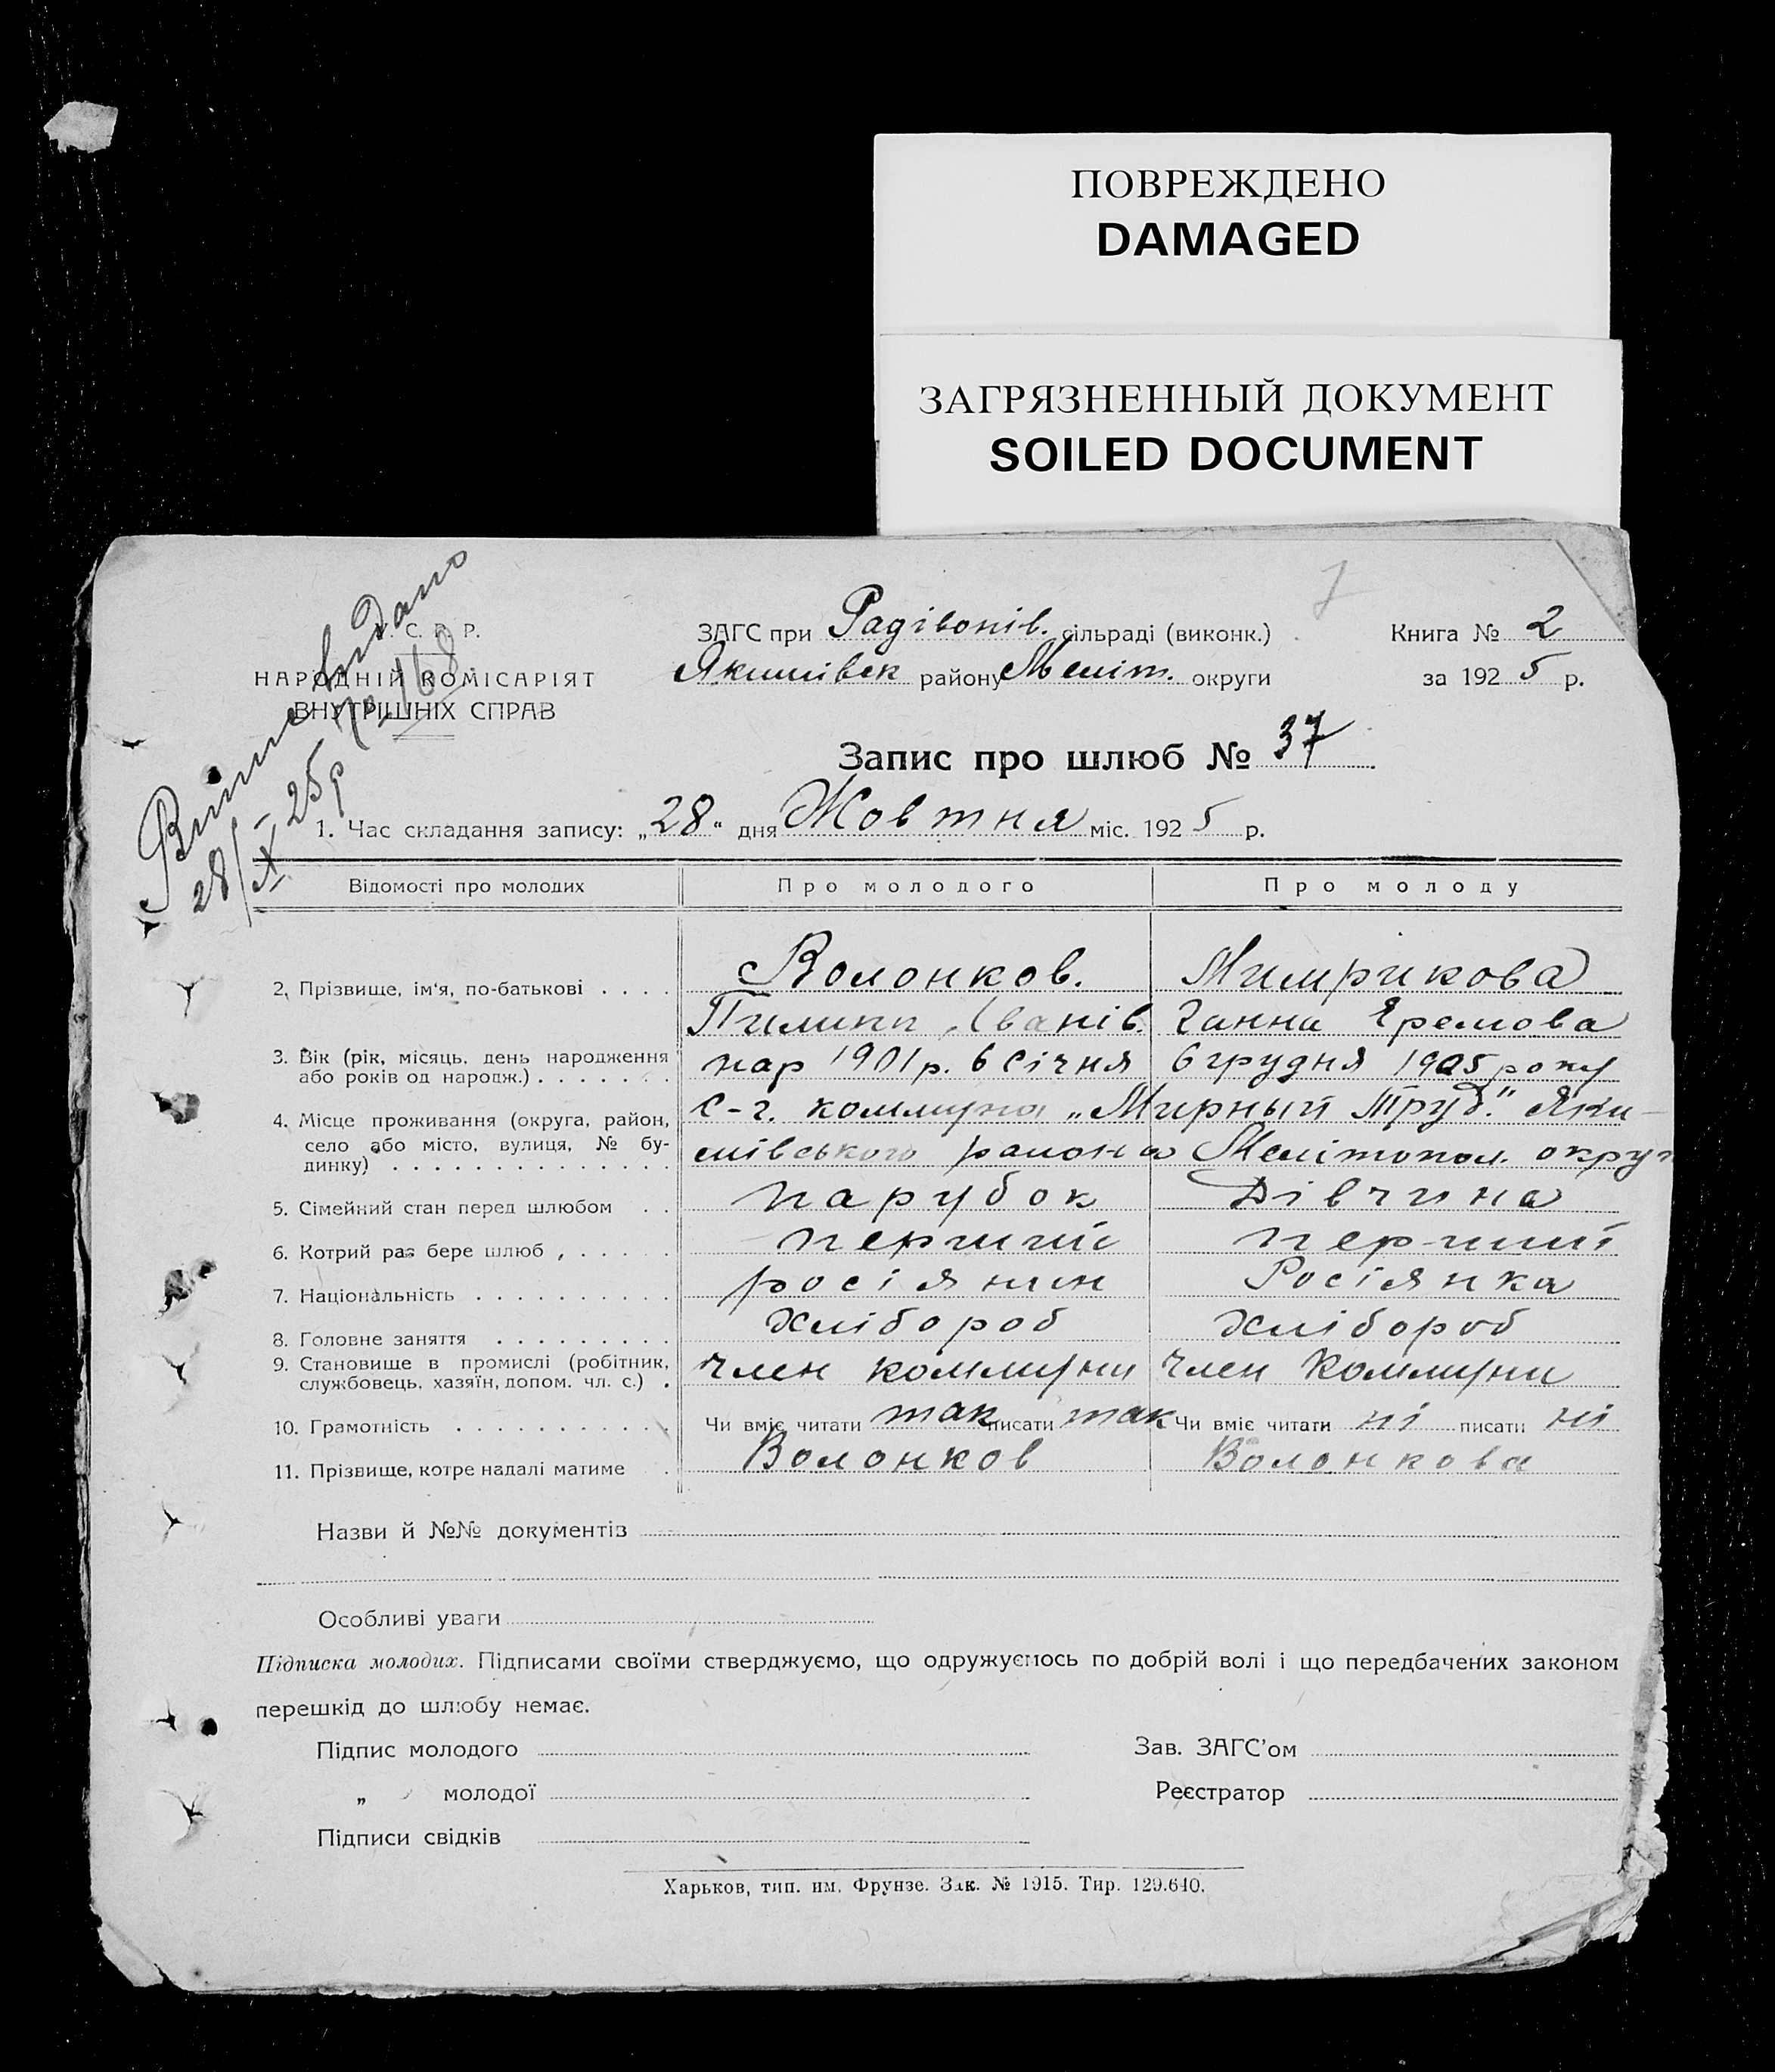 ПОВРЕЖДЕНО
DAMAGED
ЗАГРЯЗНЕННЫЙ ДОКУМЕНТ
SOILED DOCUMENT
Випис видано
28/X - 25 р № 168
С. Р. Р.
НАРОДНІЙ КОМІСАРІЯТ
ВНУТРІШНІХ СПРАВ
ЗАГС при Радівонів. сільраді (виконк.)
Якимівськ району Меліт. округи
Книга № 2
за 1925 р.
Запис про шлюб № 37
1. Час складання запису: „28“ дня Жовтня міс. 1925 р.
Відомості про молодих Про молодого Про молоду
2. Прізвище, ім'я, по-батькові . . . . Волонков. Мимрикова
Пилипп Іванів. Ганна Еремова
3. Вік (рік, місяць, день народження або років од народж.) . . . . . . . нар 1901 р. 6 Січня 6 грудня 1905 року
4. Місце проживання (округа, район, село або місто, вулиця, № будинку) . . . . . . . . . . . . . . . С-г. коммуна „Мирный Труд." Яки-
мівського района Мелітопол. округи
5. Сімейний стан перед шлюбом . . парубок Дівчина
6. Котрий раз бере шлюб , . . . . перший перший
7. Національність . . . . . . . . . . росіянин Росіянка
8. Головне заняття . . . . . . . . . хлібороб хлібороб
9. Становище в промислі (робітник, службовець, хазяїн, допом. чл. с.) . член коммуни член коммуни
10. Грамотність . . . . . . . . . . . Чи вміє читати так писати так Чи вміє читати ні писати ні
11. Прізвище, котре надалі матиме . Волонков Волонкова
Назви й №№ документів
Особливі уваги
Підписка молодих. Підписами своїми стверджуємо, що одружуємось по добрій волі і що передбачених законом
перешкід до шлюбу немає.
Підпис молодого
Зав. ЗАГС'ом
„ молодої
Реєстратор
Підписи свідків
Харьков, тип. им. Фрунзе. Зак. № 1915. Тир. 129.640.